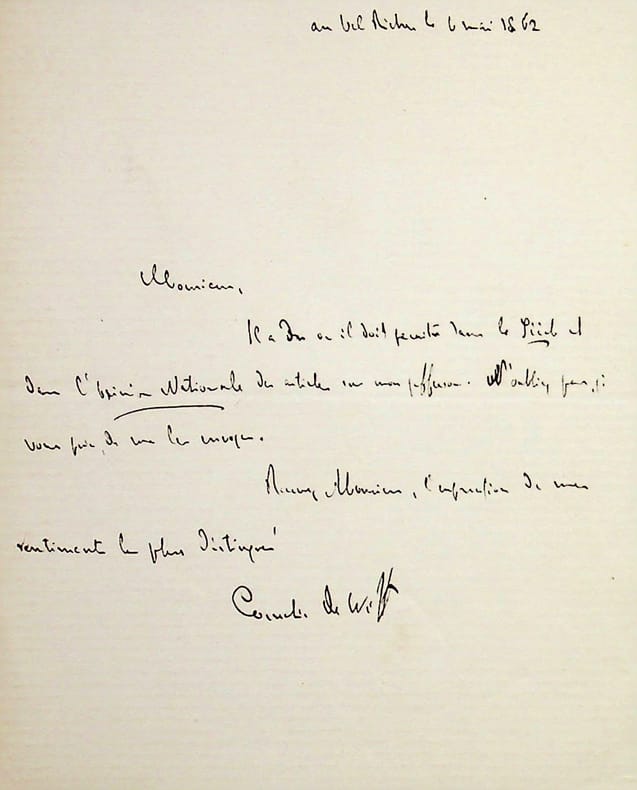 au Val Richer le 6 mai 1862
Monsieur,
Il a dû ou il doit paraître dans le Siècle et
dans l'Opinion Nationale des articles sur mon Jefferson. N'oubliez pas, je
vous prie, de me les envoyer.
Recevez Monsieur, l'expression de mes
sentiments les plus distingués
Cornelis de Witt